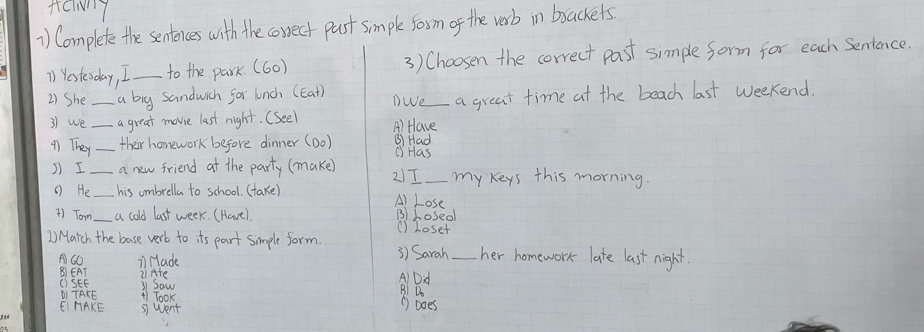 ACTIVITY
1) Complete the sentences with the correct past simple form of the verb in brackets.
1) Yesterday, I ___ to the park. (Go)
2) She ___ a big sandwich for lunch (Eat)
3) We ___ a great movie last night. (See)
4) They ___ their homework before dinner (Do)
5) I ___ a new friend at the party (make)
6) He ___ his umbrella to school. (take)
7) Tom ___ a cold last week. (Have).
2) Match the base verb to its part simple form.
A) GO 1) Made
B) EAT 2) Ate
C) SEE 3) Saw
D) TAKE 4) Took
E) MAKE 5) Went
3) Choosen the correct past simple form for each Sentence.
1) We ___ a great time at the beach last weekend.
A) Have
B) Had
C) Has
2) I ___ my keys this morning.
A) Lose
B) Losed
C) Loset
3) Sarah ___ her homework late last night.
A) Did
B) Do
C) Does